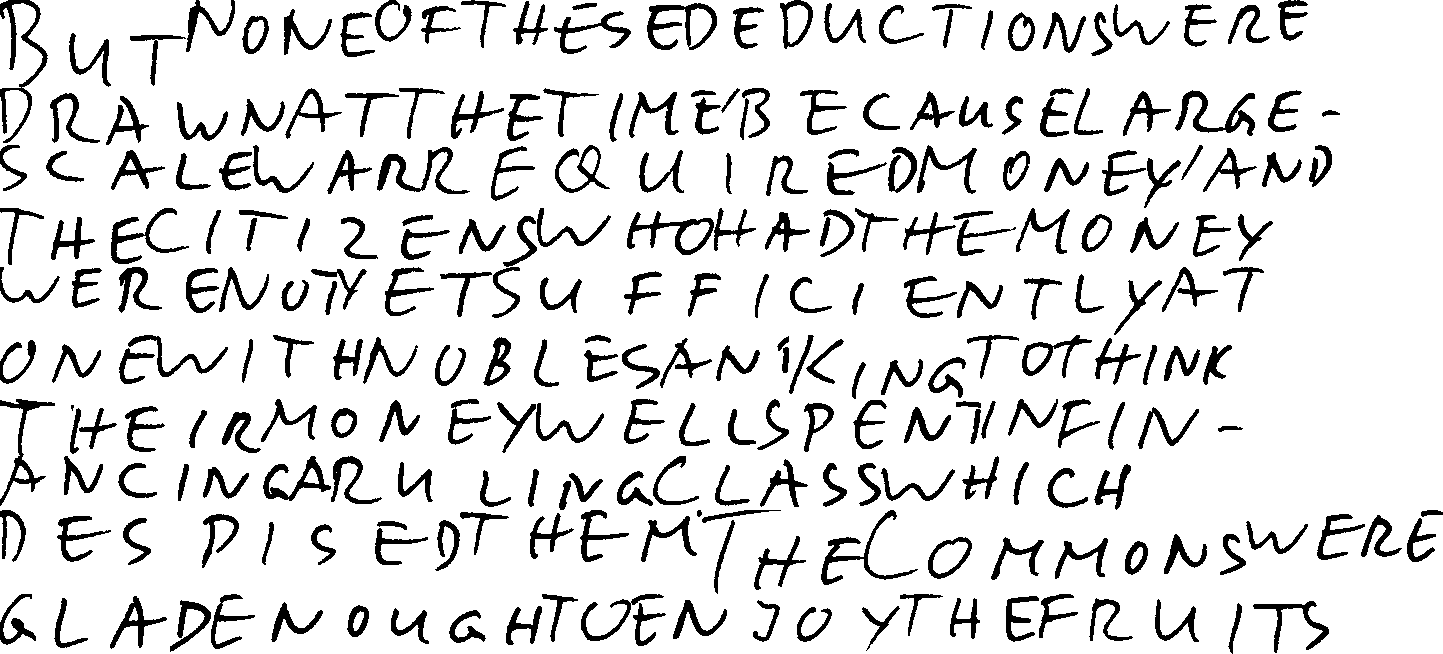 BUT NONE OF THESE DEDUCTIONS WERE
DRAWN AT THE TIME, BECAUSE LARGE-
SCALE WAR REQUIRED MONEY, AND
THE CITIZENS WHO HAD THE MONEY
WERE NOT YET SUFFICIENTLY AT
ONE WITH NOBLES AN KING TO THINK
THEIR MONEY WELL SPENT IN FIN-
ANCING A RULING CLASS WHICH
DESPISED THEM. THE COMMONS WERE
GLAD ENOUGH TO ENJOY THE FRUITS